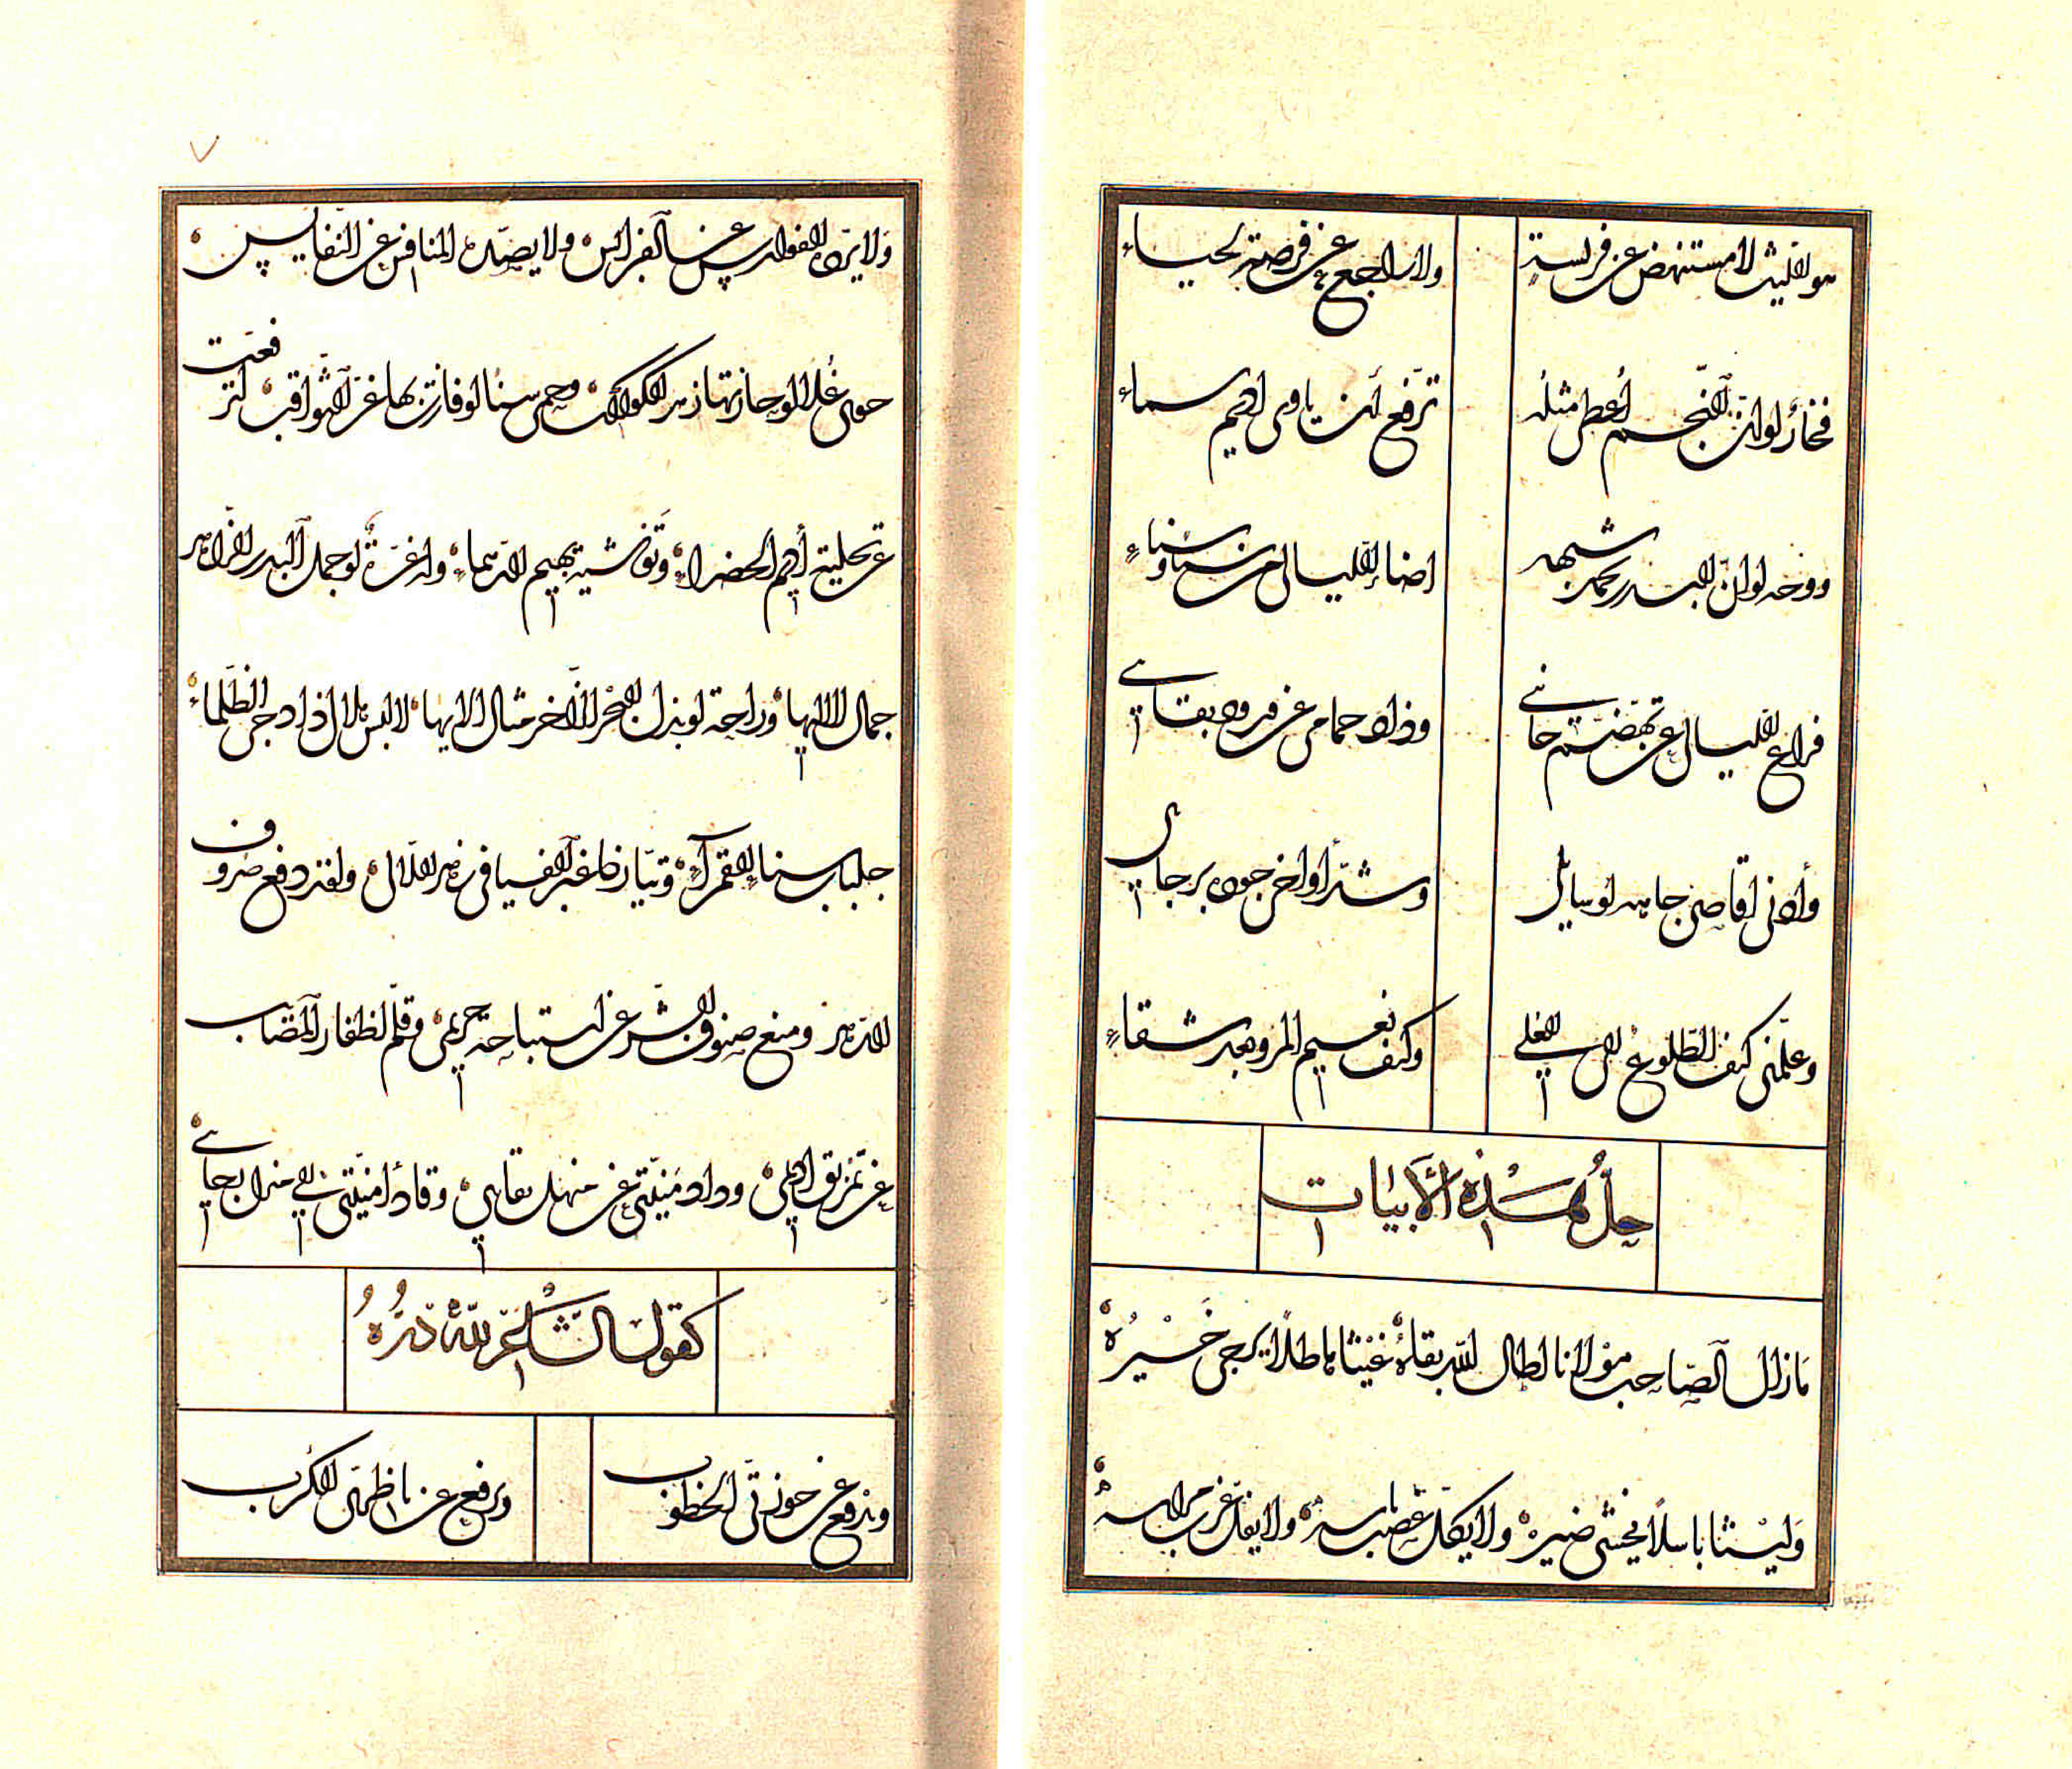 هو الليث لا مستنهض عن فريسة ولا راجع عن فرصة بحياء
فخار لو ان النجم أعطى مثله ترفع أن ياوى اديم سماء
ووجه لو ان البدر يحمد شبهه اضاء الليالى من سنا وسناء
فراع الليالى عن تهضم جانبي وذاد حمامى عن ورود بقائي
وأدنى اقاصى جاهه لوسايل وشد أواخى جوده برجاى
وعلمنى كيف الطلوع الى العلى وكيف نعيم المرء بعد شقاء
حل هذه الأبيات
ما زال الصاحب مولانا اطال الله بقاه غيثا هاطلا يرجى خيره
وليثا باسلا يخشى ضيره ولا يكل عضب باسه ولا يفل غرب مراسه
ولا يرد الفوارس عن الفرائس ولا يصد المنافس عن النفايس
حوى علا لو حازتها زهر الكواكب وحمى سنا لو فازت بها غر الثواقب لترفعت
عن تحلية أديم الخضراء وتوشية بهيم الدهماء وله غرة لو جمل البدر الزاهر
جمال لالائها وراحة لو بذل البحر الزاخر مثال الايها لالبس هلال اذا دجى الظلماء
جلباب سنا القمراء وتيار طاغ الفيافى زهر اللال ولقد دفع صروف
الدهر ومنع صنوف الشر عن استباحة حريمى وقلم اظفار المصاب
عن تمزيق اديمى وذاد منيتى عن منهل بقايي وقاد أمنيتى الي منزل رجايي
كقول الشاعر لله دره
ويدفع عن حوزتى الخطوب ويرفع عن ناظرى الكرب